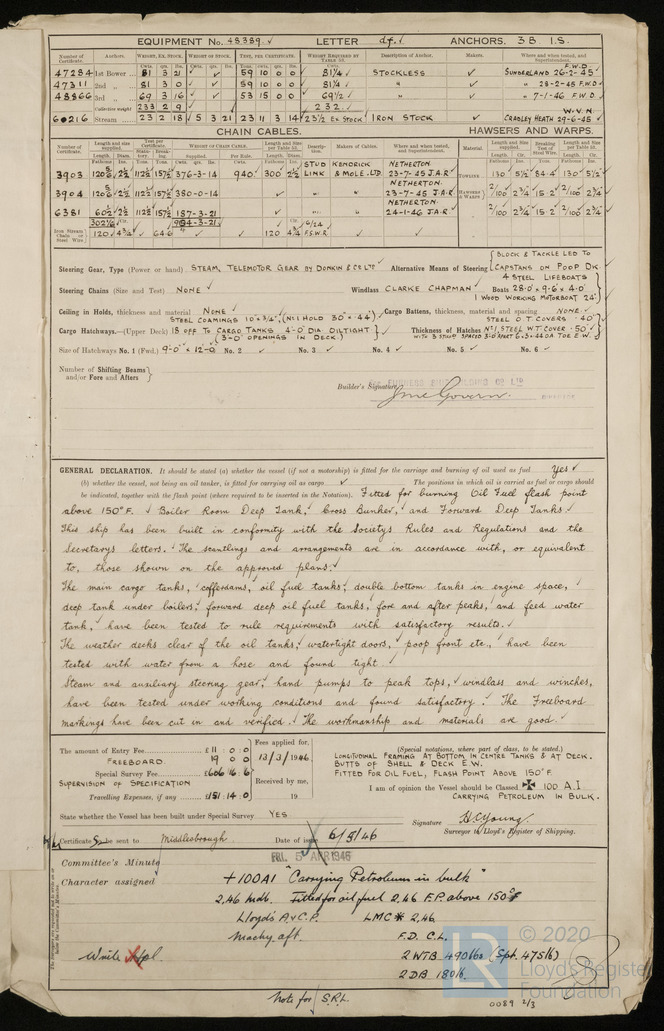 EQUIPMENT No. 48389. LETTER df. ANCHORS. 3 B. 1 S.
Number of Certificate. Anchors. WEIGHT, EX. STOCK. WEIGHT OF STOCK. TEST, PER CERTIFICATE. WEIGHT REQUIRED BY TABLE 53. Description of Anchor. Makers. Where and when tested, and Superintendent.
Cwts. qrs. lbs. Cwts. qrs. lbs. Tons. cwts. qrs. lbs. Cwts.
47284 1st Bower 81 3 21 59 10 0 0 81¼ STOCKLESS SUNDERLAND 26-2-45 F.W.D
47311 2nd „ 81 3 0 59 10 0 0 81¼ " " 28-2-45 F.W.D
48866 3rd „ 69 3 16 53 15 0 0 69½ " " 7-1-46 F.W.D.
Collective weight 233 2 9 232
60216 Stream 23 2 18 5 3 21 23 11 3 14 23½ Ex Stock IRON STOCK CRADLEY HEATH 29-6-45 W.V.N
CHAIN CABLES. HAWSERS AND WARPS.
Number of Certificate. Length and size supplied. Test per Certificate. WEIGHT OF CHAIN CABLE. Length and Size per Table 53. Description. Makers of Cables. Where and when tested, and Superintendent. Material. Length and Size supplied. Breaking Test of Steel Wire. Length and Size per Table 53.
Fathoms Diam. Statutory. Breaking. Supplied. Per Rule. Fathoms Diam. Fathoms Cir. Tons. Fathoms Cir.
3903 120⅝ 2½ 112½ 157½ 376-0-14 940 300 2½ STUD LINK KENDRICK & MOLE. LTD NETHERTON. 23-7-45 J.A.R TOWLINE 130 5½ 84·4 130 5½
3904 120⅝ 2½ 112½ 157½ 380-0-14 " " NETHERTON. 23-7-45 J.A.R HAWSERS & WARPS 2/100 2¾ 15·2 2/100 2¾
6381 60½ 2½ 112½ 157½ 187-3-21 " " NETHERTON. 24-1-46 J.A.R 2/100 2¾ 15·2 2/100 2¾
Iron Stream Chain or Steel Wire 120 4¾ 64·6 120 4¾ 6/24 F.S.W.R.
Steering Gear, Type (Power or hand) STEAM, TELEMOTOR GEAR BY DONKIN & Co LTD Alternative Means of Steering BLOCK & TACKLE LED TO CAPSTANS ON POOP DK
Steering Chains (Size and Test) NONE Windlass CLARKE CHAPMAN Boats 4 STEEL LIFEBOATS 28·0 × 9·6 × 4·0 1 WOOD WORKING MOTORBOAT 24'
Ceiling in Holds, thickness and material NONE Cargo Battens, thickness, material and spacing NONE.
STEEL COAMINGS 10" × ¾", (No 1 HOLD 30" × ·44") STEEL O.T COVERS ·40"
Cargo Hatchways.—(Upper Deck) 18 OFF TO CARGO TANKS 4-0" DIA OILTIGHT Thickness of Hatches No 1 STEEL W.T COVER ·50"
(3-0" OPENINGS IN DECK)
Size of Hatchways No. 1 (Fwd.) 9-0" × 12-0 No. 2 No. 3 No. 4 No. 5 No. 6
Number of Shifting Beams and/or Fore and Afters
Builder's Signature J McGovern.
GENERAL DECLARATION. It should be stated (a) whether the vessel (if not a motorship) is fitted for the carriage and burning of oil used as fuel Yes
(b) whether the vessel, not being an oil tanker, is fitted for carrying oil as cargo The positions in which oil is carried as fuel or cargo should
be indicated, together with the flash point (where required to be inserted in the Notation). Fitted for burning Oil Fuel flash point
above 150°F. Boiler Room Deep Tank, Cross Bunker, and Forward Deep Tanks.
This ship has been built in conformity with the Societys Rules and Regulations and the
Secretarys letters. The scantlings and arrangements are in accordance with, or equivalent
to, those shown on the approved plans.
The main cargo tanks, cofferdams, oil fuel tanks, double bottom tanks in engine space,
deep tank under boilers, forward deep oil fuel tanks, fore and after peaks, and feed water
tank, have been tested to rule requirements with satisfactory results.
The weather decks clear of the oil tanks, watertight doors, poop front etc., have been
tested with water from a hose and found tight.
Steam and auxiliary steering gear, hand pumps to peak tops, windlass and winches,
have been tested under working conditions and found satisfactory. The Freeboard
markings have been cut in and verified. The workmanship and materials are good.
The amount of Entry Fee £ 11 : 0 : 0 Fees applied for, 13/3/1946
FREEBOARD 19 0 0
Special Survey Fee £606 16 6
SUPERVISION OF SPECIFICATION Received by me,
Travelling Expenses, if any £151 : 14 : 0 19
(Special notations, where part of class, to be stated.)
LONGITUDINAL FRAMING AT BOTTOM IN CENTRE TANKS & AT DECK.
BUTTS OF SHELL & DECK E.W.
FITTED FOR OIL FUEL, FLASH POINT ABOVE 150°F.
I am of opinion the Vessel should be Classed ✠ 100 A.1
CARRYING PETROLEUM IN BULK.
State whether the Vessel has been built under Special Survey YES
Signature
Surveyor to Lloyd's Register of Shipping.
Certificate to be sent to Middlesbrough Date of issue 6/5/46
FRI. 5 APR 1946
Committee's Minute
Character assigned +100A1 "Carrying Petroleum in bulk"
2,46 Mdb. Fitted for oil fuel 2,46 F.P. above 150°F
Lloyd's A & C.P. LMC* 2,46
Machy aft. F.D. C.L.
Write 2 WTB 490lbs (Spt. 475lb)
2 DB 180lb.
© 2020
Lloyd's Register
Foundation
Note for S.R.L.
0089 2/3